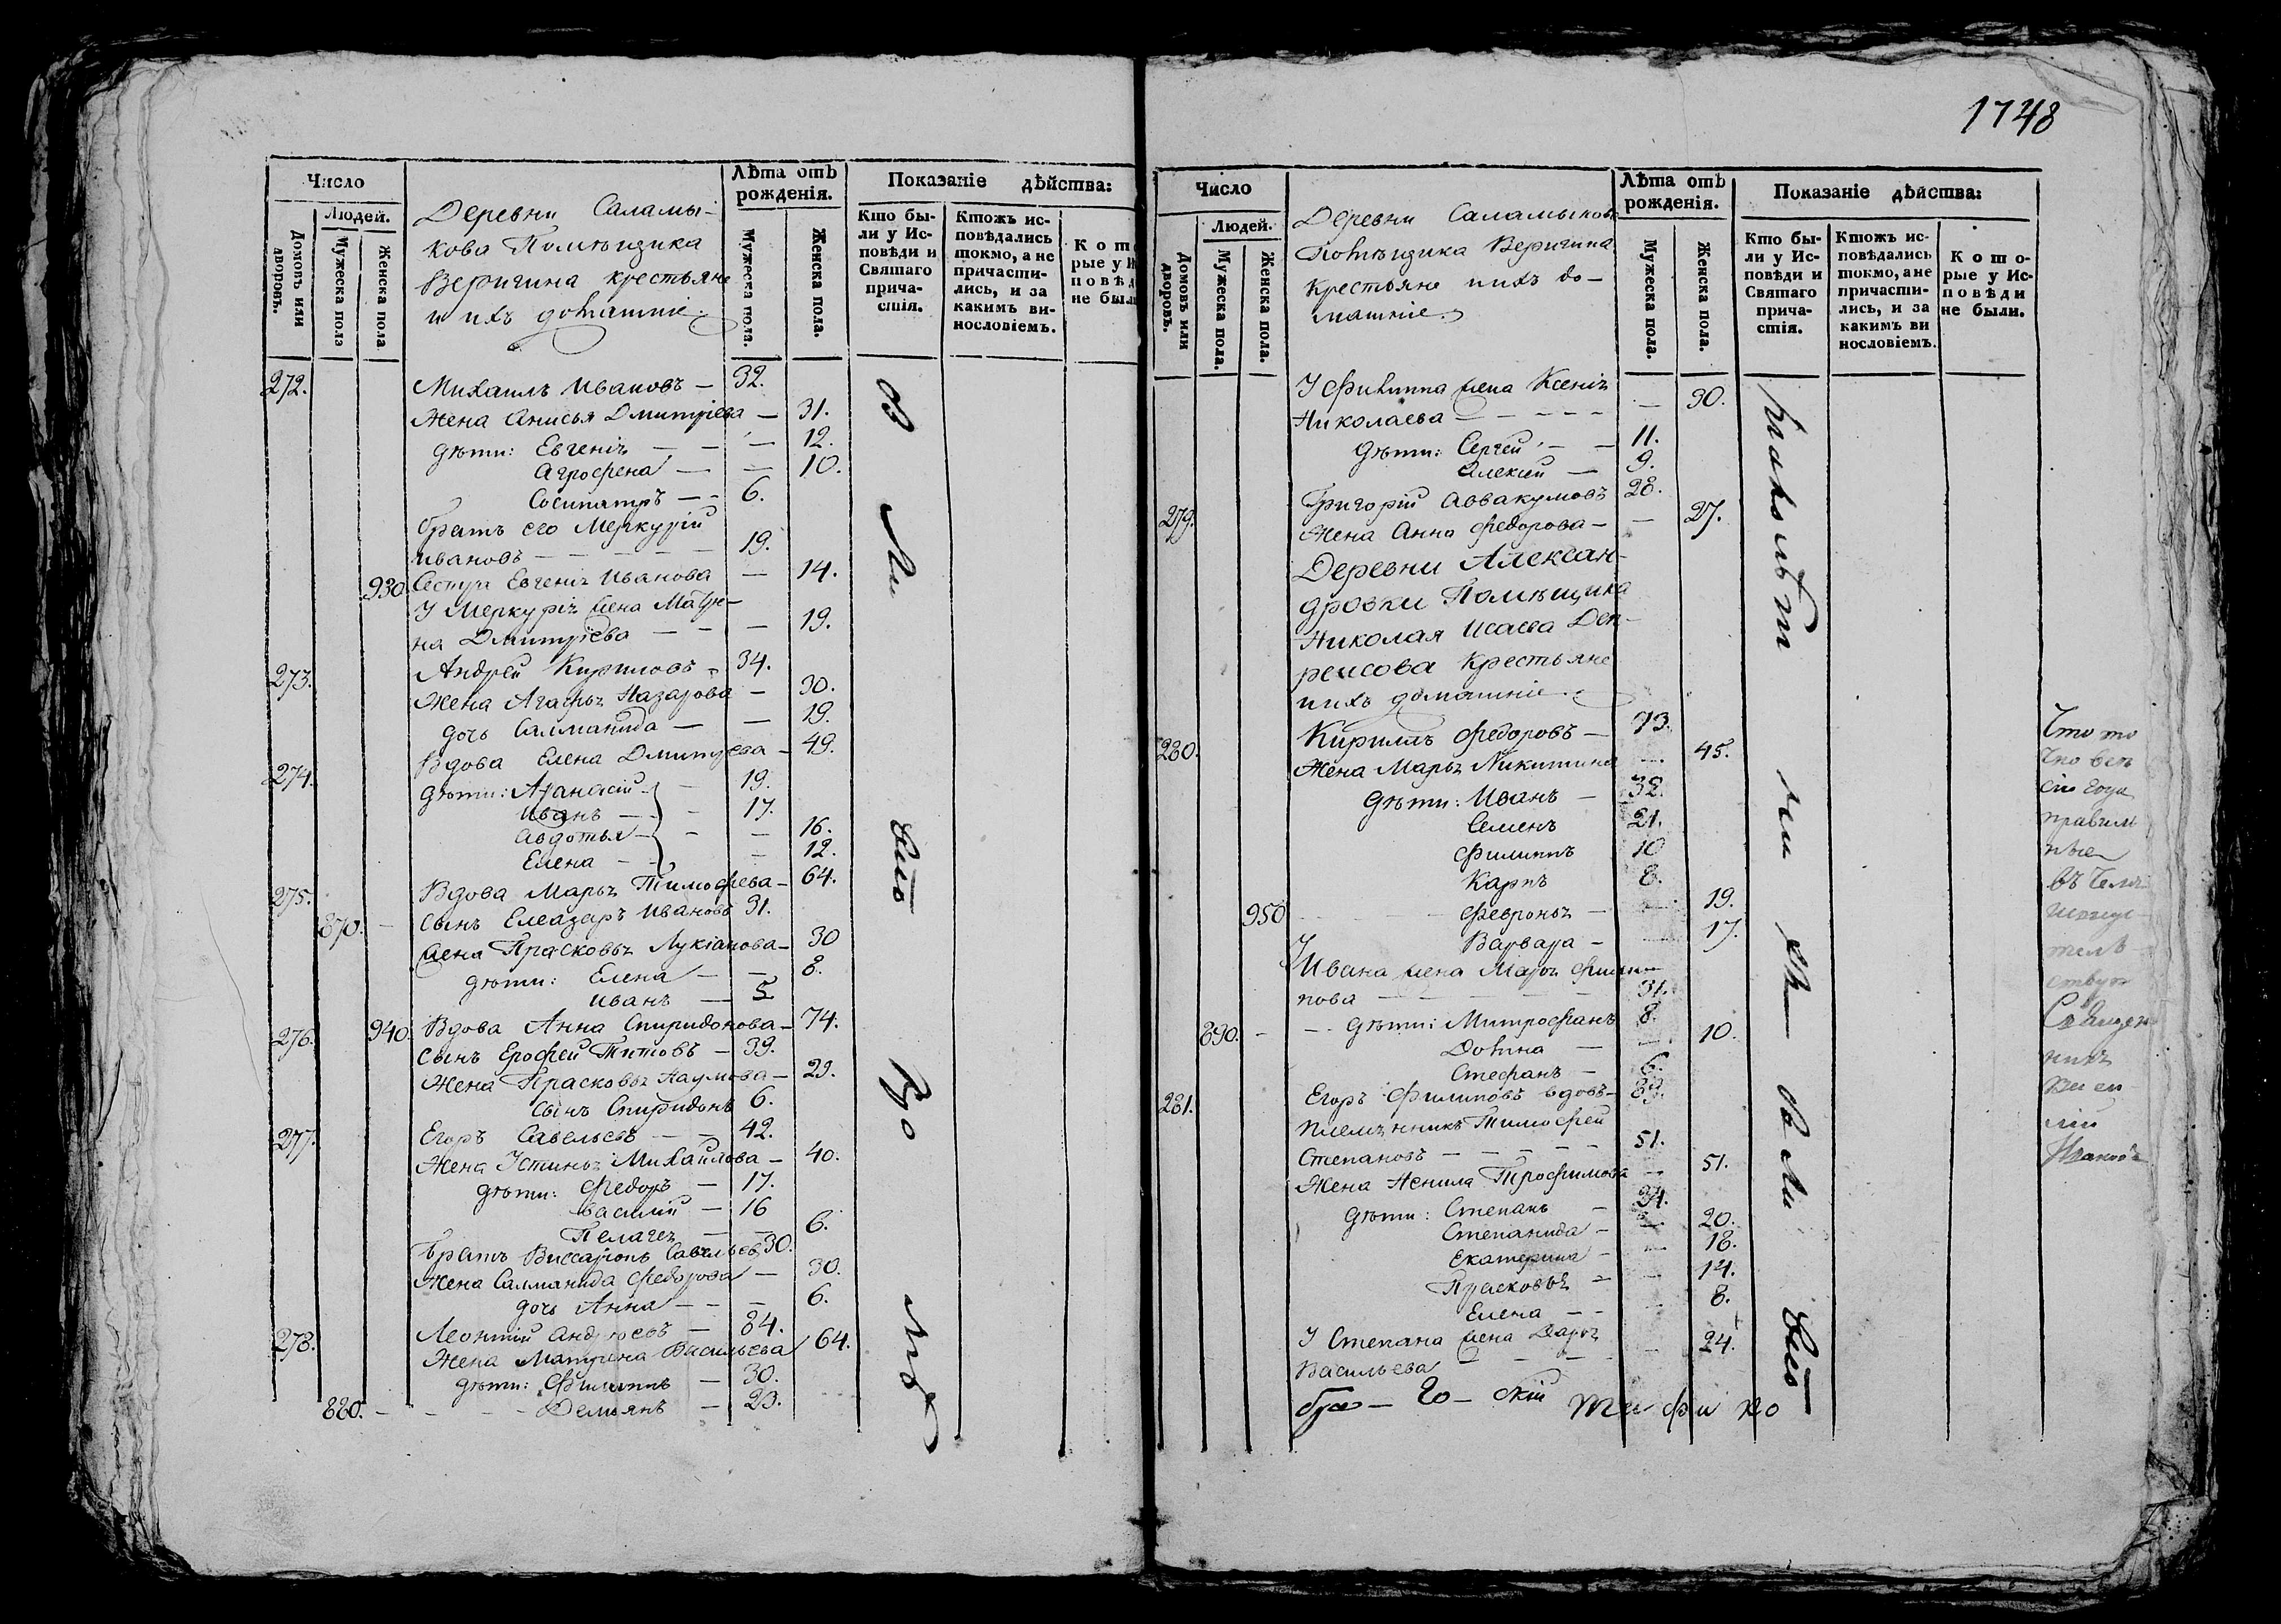 1748
Число
Людей.
Домовъ или дворовъ.
Мужеска пола
Женска пола.
Деревни Саламы-
кова Помѣщика
Веригина крестьяне
и ихъ домашніе.
Лѣта отъ рожденія.
Мужеска пола.
Женска пола.
Показаніе дѣйства:
Кто бы-
ли у Ис-
повѣди и
Святаго
прича-
стія.
Ктожъ ис-
повѣдались
токмо, а не
причасти-
лись, и за
какимъ ви-
нословіемъ.
272. Михаилъ Ивановъ — 32.
Жена Анисья Дмитріева — 31.
дѣти: Евгенія — — — 12.
Агрофена — — 10.
Сосипатръ — — 6.
братъ его Меркурій
Ивановъ — — — — — 19.
930 Сестра Евгенія Иванова — 14.
У Меркурія жена Матре-
на Дмитріева — — — 19.
273. Андрей Кириловъ — 34.
Жена Агафья Назарова — 30.
дочь Саламанида — — 19.
274. Вдова Елена Дмитрева — 49.
дѣти: Афанасій — 19.
Иванъ — — 17.
Авдотья — — — 16.
Елена — — — 12.
275. Вдова Марья Тимофеева — 64.
870. — Сынъ Елеазаръ Ивановъ 31.
жена Прасковья Лукіанова — 30
дѣти: Елена — — 8.
Иванъ — 5
276. 940. Вдова Анна Спиридонова — 74.
Сынъ Ерофей Титовъ — 39.
Жена Прасковья Наумова — 29.
Сынъ Спиридонъ 6.
277. Егоръ Савельевъ — — 42.
Жена Устинья Михайлова — 40.
дѣти: Федоръ — 17.
Василій — 16
Пелагея — — 6.
Братъ Виссаріонъ Савельевъ 30.
Жена Саламанида Федорова — 30.
дочь Анна — — — 6.
278. Леонтій Андреевъ — 84.
Жена Матрена Васильева 64.
дѣти: Филиппъ — 30.
880. — — — — Демьянъ — 23.
Число
Людей.
Домовъ или дворовъ.
Мужеска пола
Женска пола.
Деревни Саламыкова
Помѣщика Веригина
Крестьяне и ихъ до-
машніе.
Лѣта отъ рожденія.
Мужеска пола.
Женска пола.
Показаніе дѣйства:
Кто бы-
ли у Ис-
повѣди и
Святаго
прича-
стія.
Ктожъ ис-
повѣдались
токмо, а не
причасти-
лись, и за
какимъ ви
нословіемъ.
Кото-
рые у Ис-
повѣди
не были.
У Филиппа жена Ксенія
Николаева — — — — — 30.
дѣти: Сергей — — 11.
Алексій — 9.
279. Григорій Аввакумовъ 28.
Жена Анна Федорова — — 27.
Деревни Алексан-
дровки Помѣщика
Николая Исаева
Крестьяне
и ихъ домашніе.
280. Кирилъ Федоровъ — 73.
Жена Марья Никитина — 45.
дѣти: Иванъ — 32.
Семенъ 21.
Филиппъ 10
Карпъ 8.
950 Февронья — — 19.
Варвара — — 17.
У Ивана жена Марья Филип-
пова — — — — — 31.
890. — — дѣти: Митрофанъ 8.
Домна — — 10.
Стефанъ — 6.
281. Егоръ Филиповъ вдовъ —
племянникъ Тимофей
Степановъ — — — — 51.
Жена Ненила Трофимова — 51.
дѣти: Степанъ — 24.
Степанида — — 20.
Екатерина — — 18.
Прасковья — — 14.
Елена — — — 8.
У Степана жена Дарья
Васильева — — — — 24.